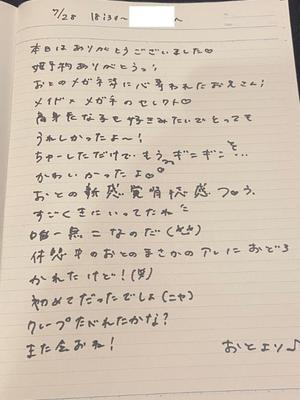 7/28 18:30〜 〜
本日はありがとうございました♡
姫予約ありがとうっ!
おとのメガネ姿に心奪われたお兄さん!
メイド×メガネのセレクト♡
自身たなるを好きみたいでとっても
うれしかったよ〜!
ちゅーしただけで、もうギンギンで…
かわいかったよ♡
おとの新感覚骨抜感つぅ。
すごくきにいってたね
唯一無二なのだ(笑)
休憩中のおとのまさかのアレにおどろ
かれたけど!(笑)
初めてだったでしょ(ニヤ)
クレープたべれたかな?
また会おね!
おとより♪